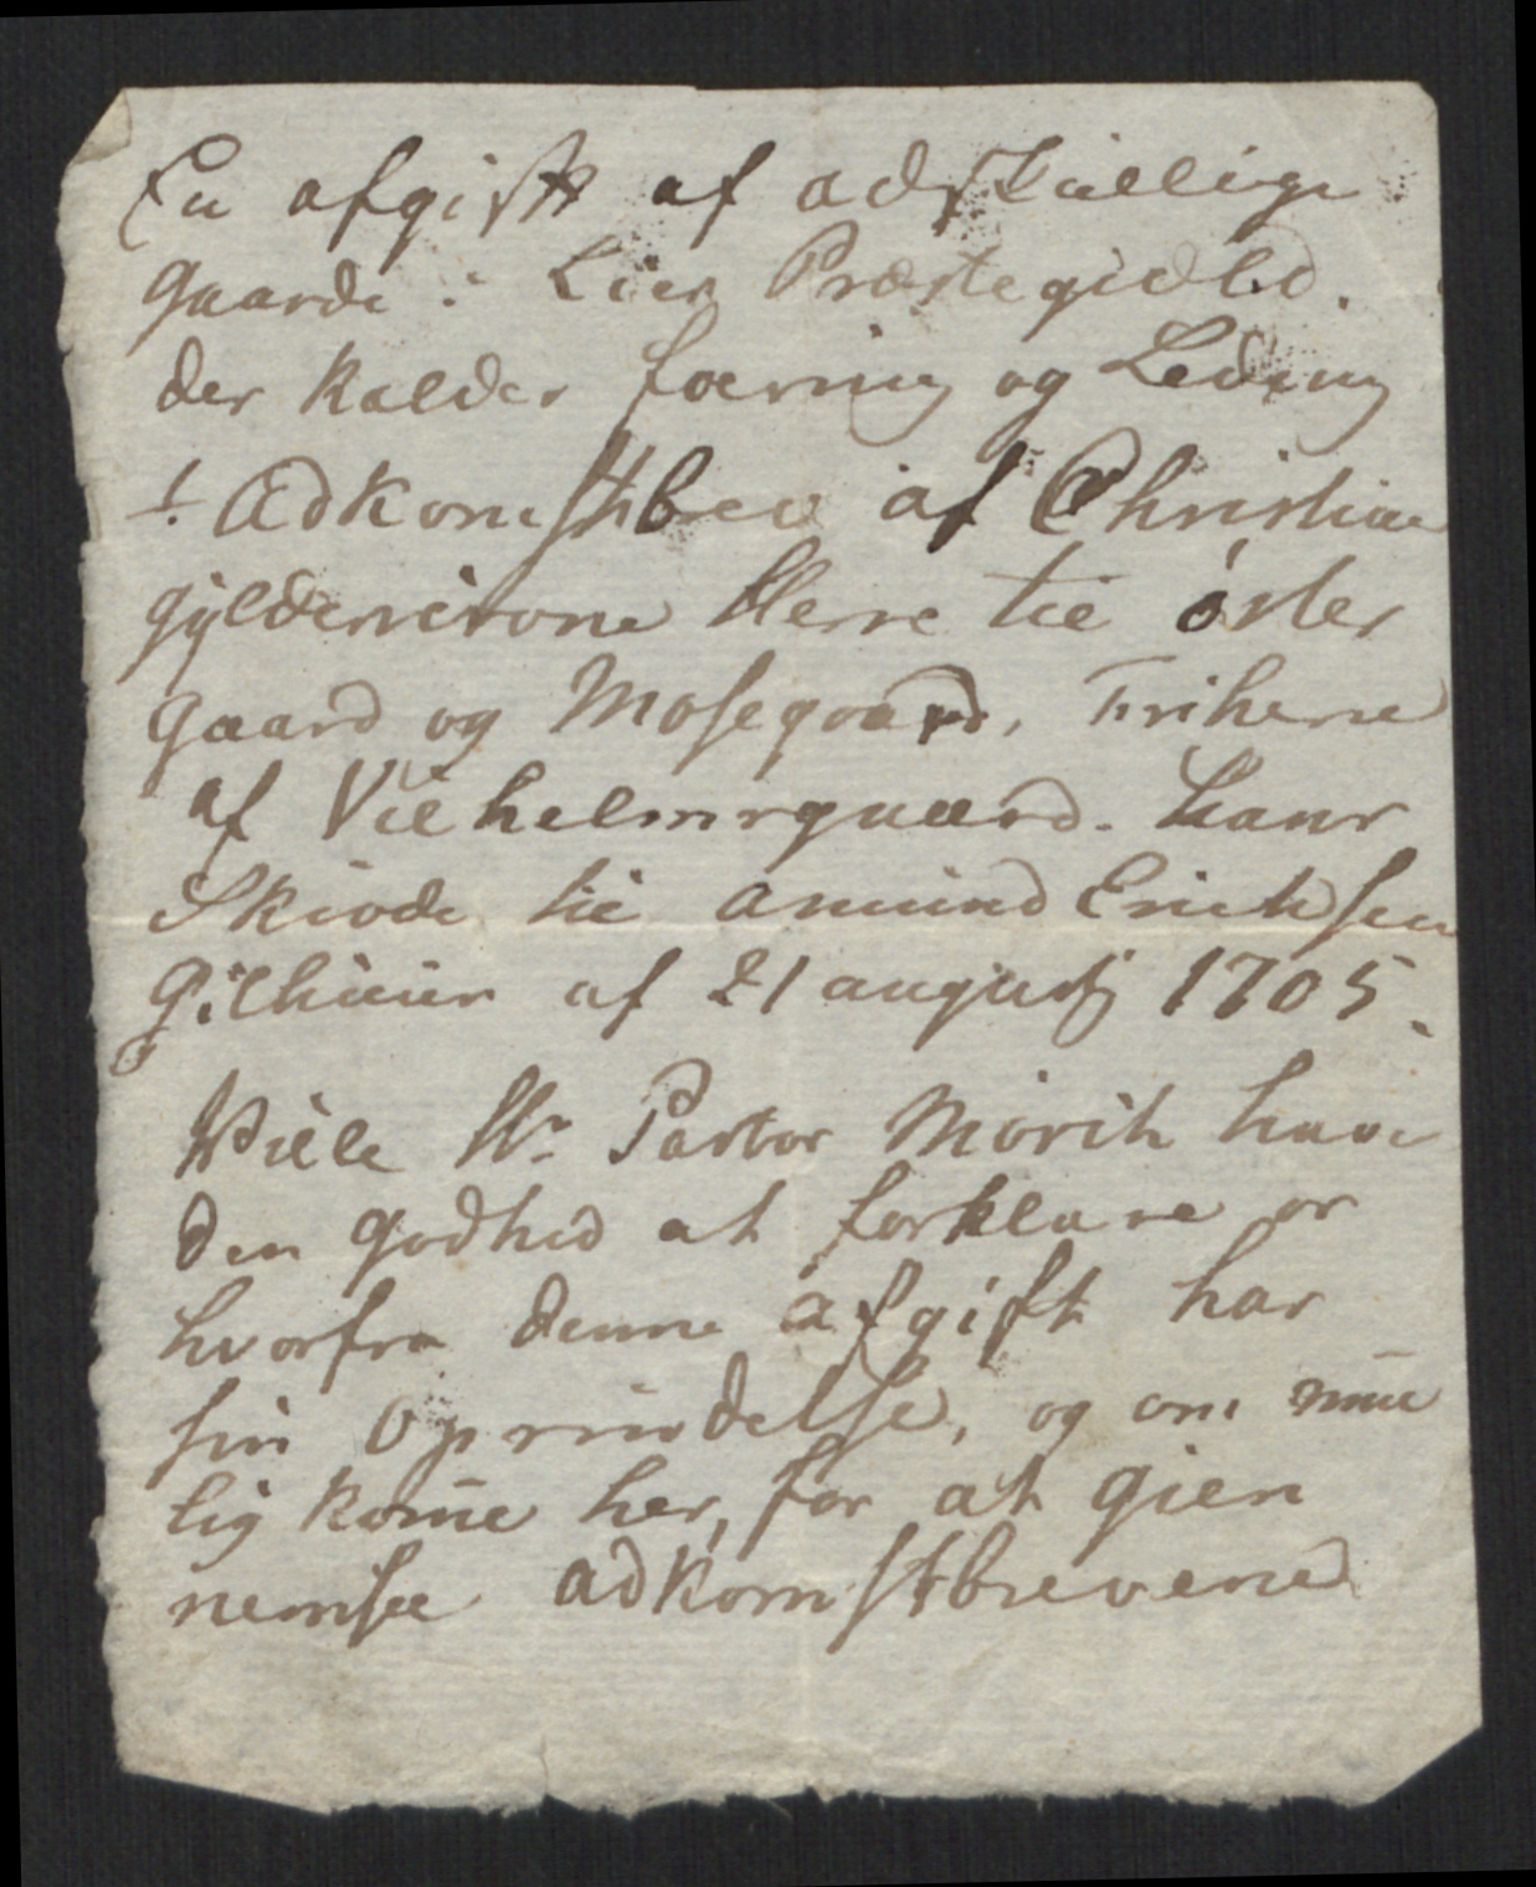 En afgift af adskillige
Gaarde i Lier Præstegield.
der kaldes foering og Leding
1. Adkomstbrev af Christian
gyldenløve Herre til öster
gaard og Mosegaard, Friherre
af Vilhelmsgaard. hans
Skiøde til Amund Erichsen
Gilhuus af 21 augustj 1705.
Wille Hr Pastor Mörch have
den godhed at forklare os
hvorfra denne afgift har
sin Oprindelse, og om mue
lig kom̄e her, for at gien
nemsee adkomstbrevene